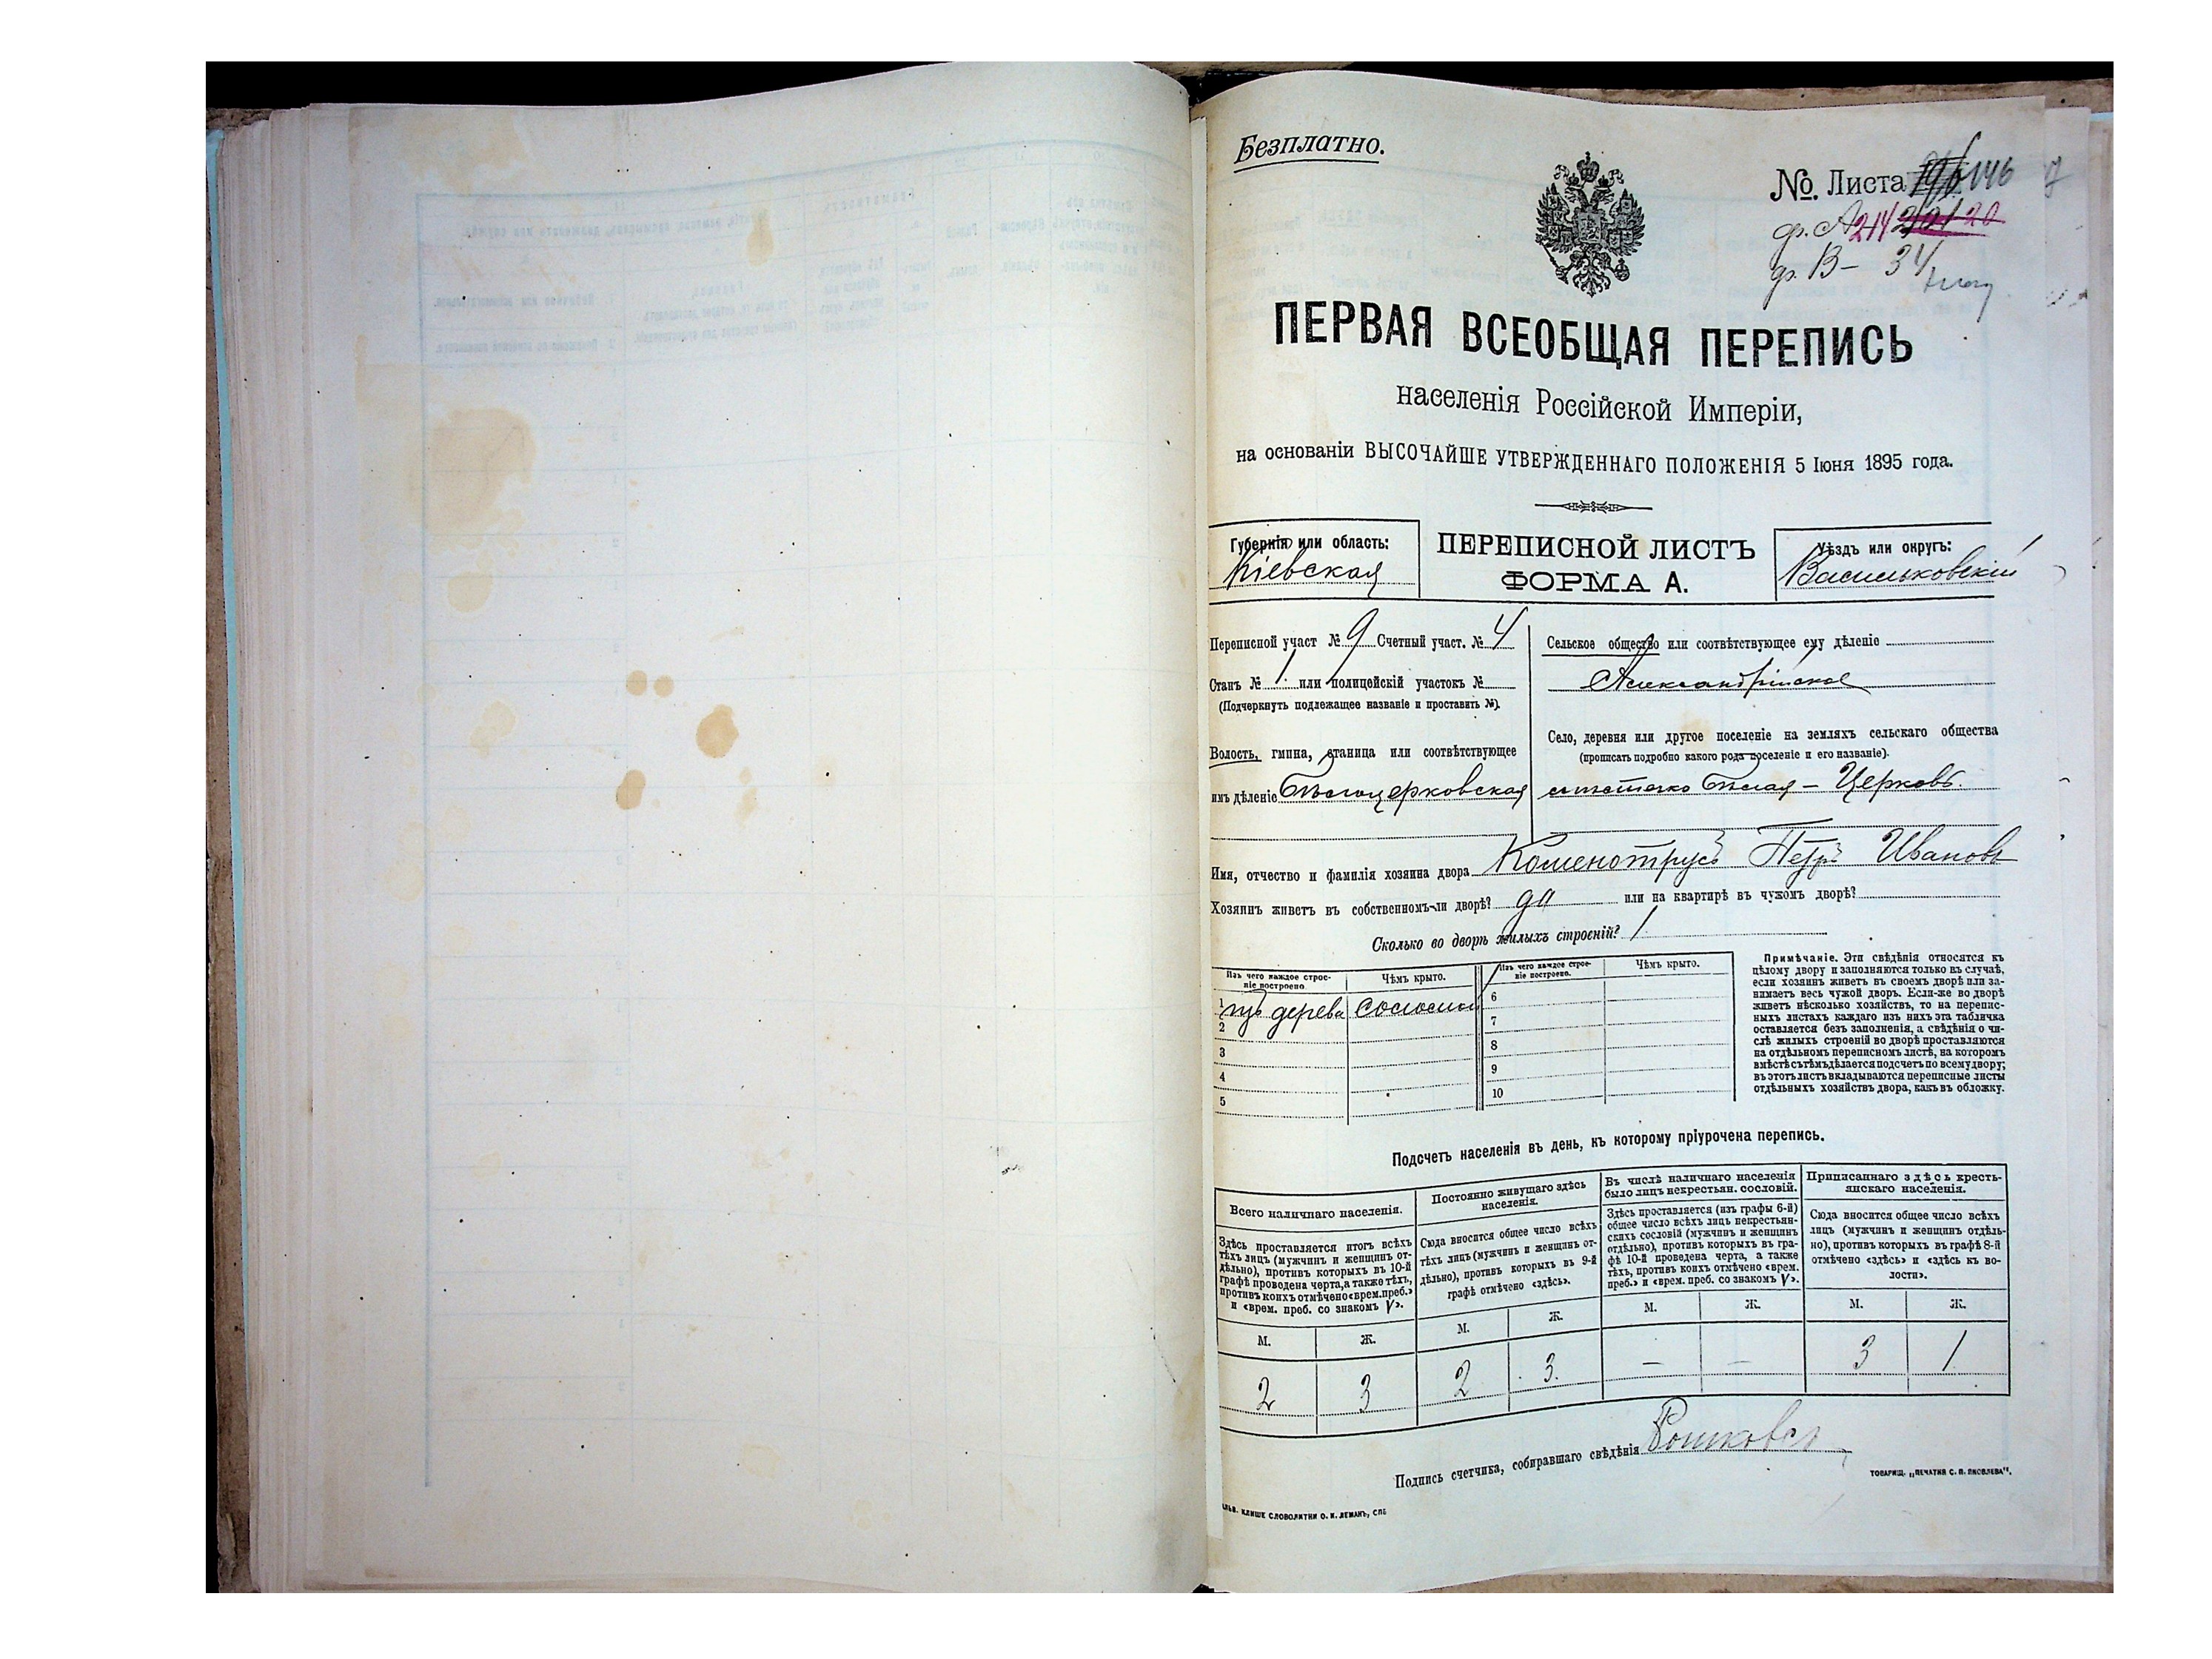 Безплатно.
№. Листа 146
ф. А 214
ф. В – 34
ПЕРВАЯ ВСЕОБЩАЯ ПЕРЕПИСЬ
населенія Россійской Имперіи,
на основаніи ВЫСОЧАЙШЕ УТВЕРЖДЕННАГО ПОЛОЖЕНІЯ 5 Іюня 1895 года.
Губернія или область:
Кіевская
ПЕРЕПИСНОЙ ЛИСТЪ
ФОРМА А.
Уѣздъ или округъ:
Васильковскій
Переписной участ № 9 Счетный участ. № 4
Станъ № 1 или полицейскій участокъ №
(Подчеркнуть подлежащее названіе и проставить №).
Волость, гмина, станица или соотвѣтствующее
имъ дѣленіе Бѣлоцерковская
Сельское общество или соотвѣтствующее ему дѣленіе
Александрійское
Село, деревня или другое поселеніе на земляхъ сельскаго общества
(прописать подробно какого рода поселеніе и его названіе).
мѣстечко Бѣлая – Церковь.
Имя, отчество и фамилія хозяина двора Коменотрусъ Петръ Ивановъ
Хозяинъ живетъ въ собственномъ-ли дворѣ? да или на квартирѣ въ чужомъ дворѣ?
Сколько во дворѣ жилыхъ строеній? 1
Изъ чего каждое строе-
ніе построено
Чѣмъ крыто.
Изъ чего каждое строе-
ніе построено.
Чѣмъ крыто.
1 изъ дерева соломой
2
3
4
5
6
7
8
9
10
Примѣчаніе. Эти свѣдѣнія относятся къ
цѣлому двору и заполняются только въ случаѣ,
если хозяинъ живетъ въ своемъ дворѣ или за-
нимаетъ весь чужой дворъ. Если-же во дворѣ
живетъ нѣсколько хозяйствъ, то на перепис-
ныхъ листахъ каждаго изъ нихъ эта табличка
оставляется безъ заполненія, а свѣдѣнія о чи-
слѣ жилыхъ строеній во дворѣ проставляются
на отдѣльномъ переписномъ листѣ, на которомъ
вмѣстѣ съ тѣмъ дѣлается подсчетъ по всему двору;
въ этотъ листъ вкладываются переписные листы
отдѣльныхъ хозяйствъ двора, какъ въ обложку.
Подсчетъ населенія въ день, къ которому пріурочена перепись.
Всего наличнаго населенія.
Здѣсь проставляется итогъ всѣхъ
тѣхъ лицъ (мужчинъ и женщинъ от-
дѣльно), противъ которыхъ въ 10-й
графѣ проведена черта, а также тѣхъ,
противъ коихъ отмѣчено «врем. преб.»
и «врем. преб. со знакомъ V».
М. Ж.
2 3
Постоянно живущаго здѣсь
населенія.
Сюда вносится общее число всѣхъ
тѣхъ лицъ (мужчинъ и женщинъ от-
дѣльно), противъ которыхъ въ 9-й
графѣ отмѣчено «здѣсь».
М. Ж.
2 3.
Въ числѣ наличнаго населенія
было лицъ некрестьян. сословій.
Здѣсь проставляется (изъ графы 6-й)
общее число всѣхъ лицъ некрестьян-
скихъ сословій (мужчинъ и женщинъ
отдѣльно), противъ которыхъ въ гра-
фѣ 10-й проведена черта, а также
тѣхъ, противъ коихъ отмѣчено «врем.
преб.» и «врем. преб. со знакомъ V».
М. Ж.
– –
Приписаннаго здѣсь кресть-
янскаго населенія.
Сюда вносится общее число всѣхъ
лицъ (мужчинъ и женщинъ отдѣль-
но), противъ которыхъ въ графѣ 8-й
отмѣчено «здѣсь» и «здѣсь къ во-
лости».
М. Ж.
3 1
Подпись счетчика, собиравшаго свѣдѣнія
КЛИШЕ СЛОВОЛИТНИ О. И. ЛЕМАНЪ, СПБ
ТОВАРИЩ. „ПЕЧАТНЯ С. П. ЯКОВЛЕВА".